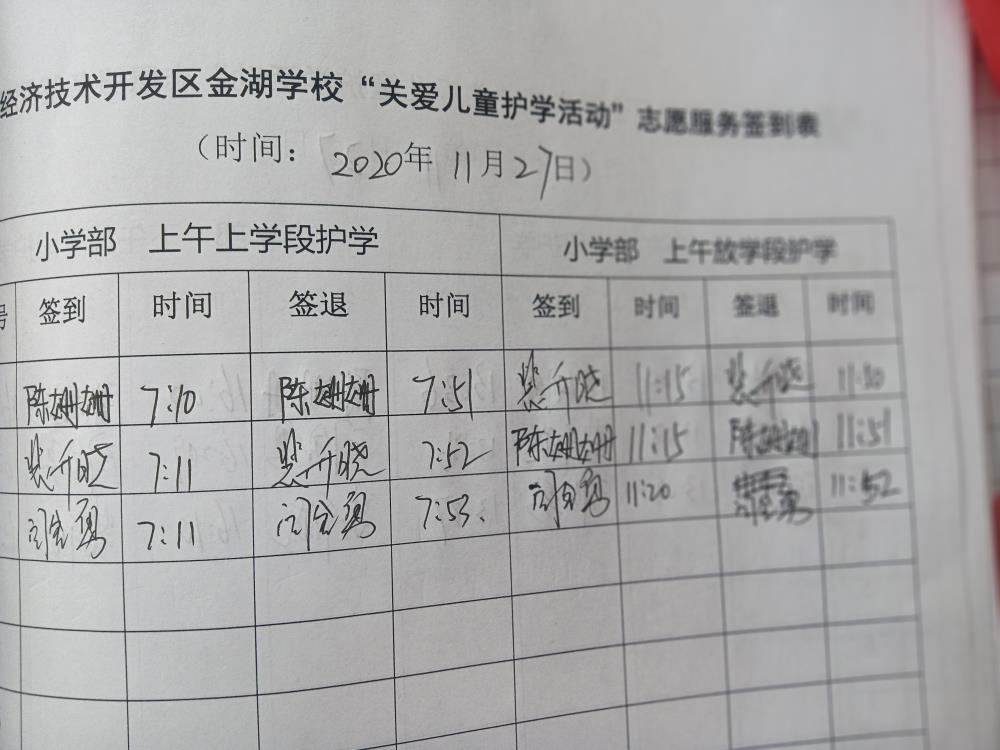 经济技术开发区金湖学校“关爱儿童护学活动”志愿服务签到表
（时间：2020年11月27日）
小学部 上午上学段护学 小学部 上午放学段护学
签到 时间 签退 时间 签到 时间 签退 时间
陈姗姗 7:10 陈姗姗 7:51 裴开晓 11:15 裴开晓
裴开晓 7:11 裴开晓 7:52 陈姗姗 11:15 陈姗姗 11:51
7:11 7:53. 11:20 11:52